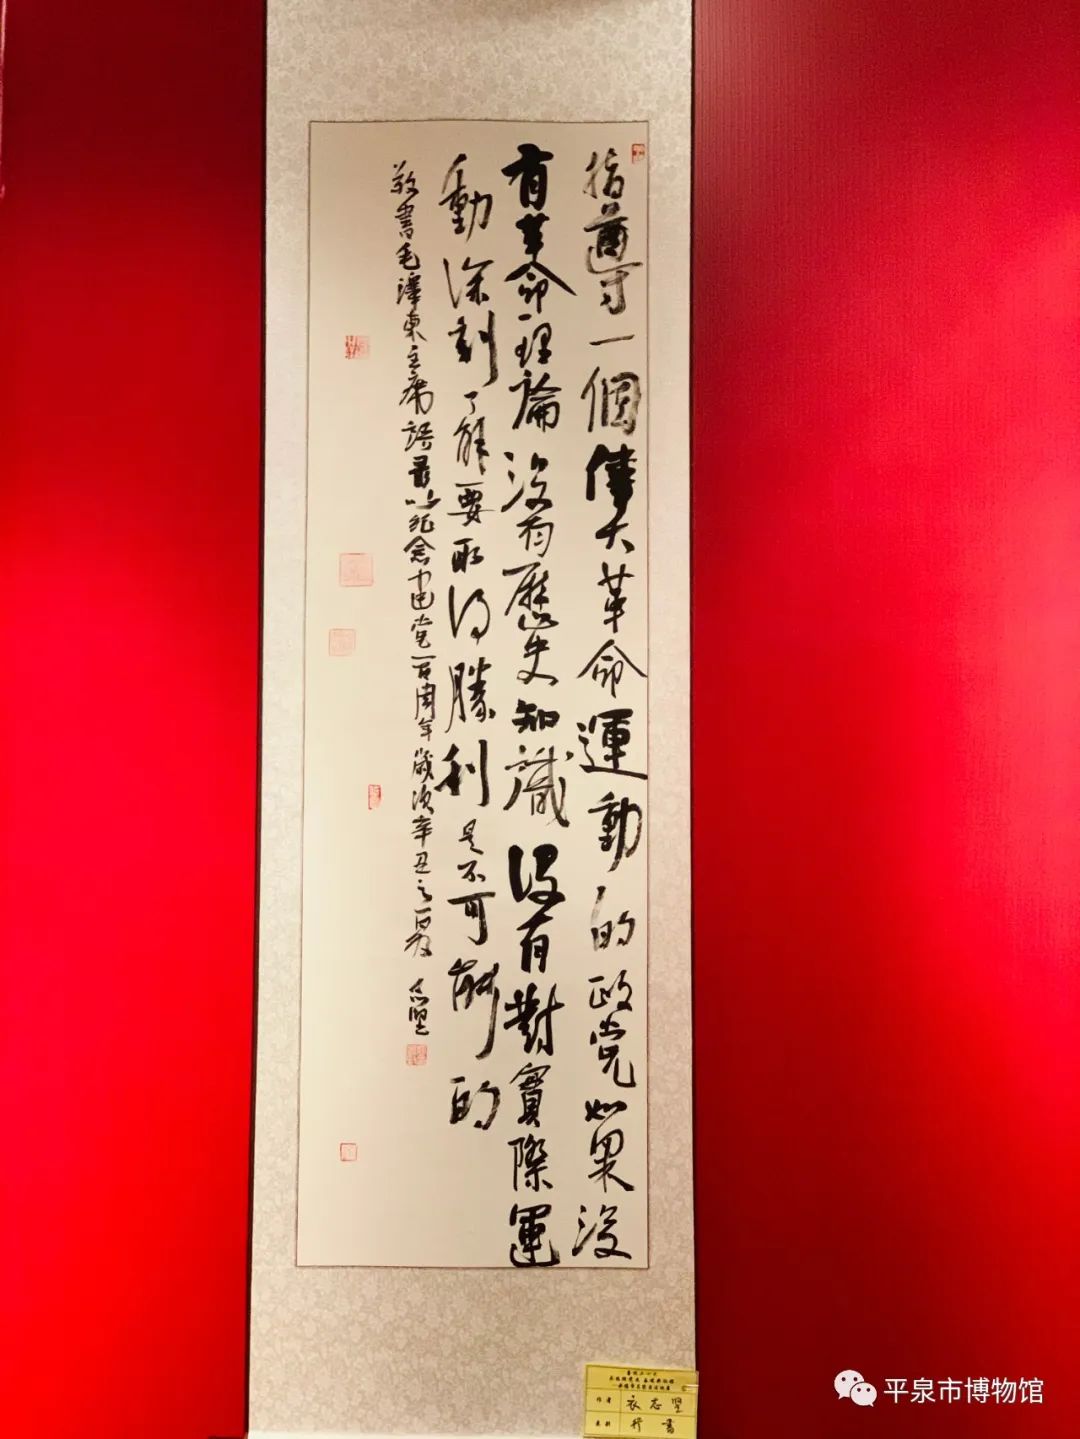 指導一個偉大革命運動的政党如果没
有革命理論没有歷史知識没有對實際運
動深刻了解要取得勝利是不可能的
敬書毛澤東主席語录以纪念中國建党一百周年歲次辛丑之夏 志坚
作者 衣志坚
行書
平泉市博物馆